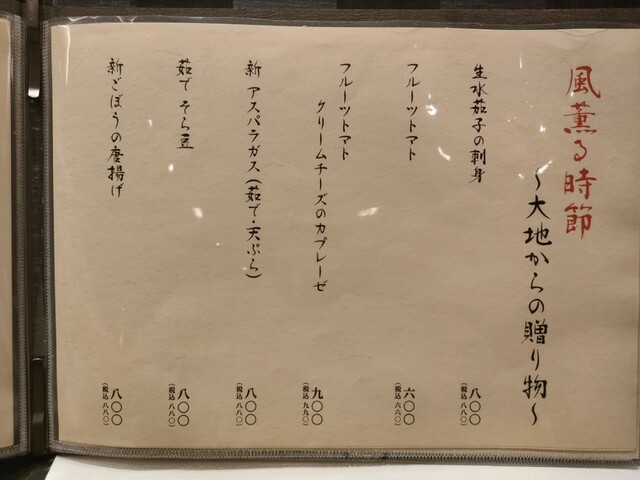 風薫る時節
～大地からの贈り物～
生水茄子の刺身
八〇〇
(税込 八八〇)
フルーツトマト
六〇〇
(税込 六六〇)
フルーツトマト
クリームチーズのカプレーゼ
九〇〇
(税込 九九〇)
新 アスパラガス(茹で・天ぷら)
八〇〇
(税込 八八〇)
茹で そら豆
八〇〇
(税込 八八〇)
新ごぼうの唐揚げ
八〇〇
(税込 八八〇)